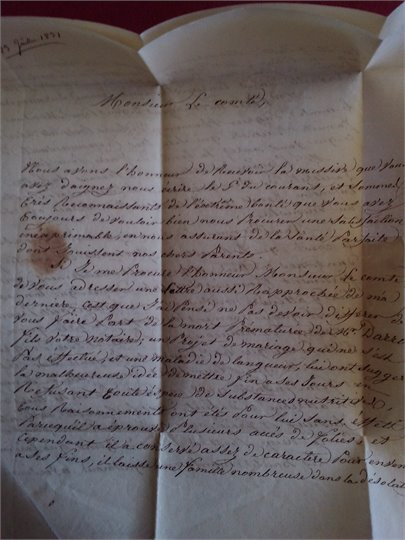 Monsieur Le comte,
Nous avons l'honneur de Recevoir la missive que vous
avez daignez nous ecrire le 5 du courant, et sommes
tres Reconnaissants de l'extrême bonté que vous avez
toujours de vouloir bien nous Procurer une satisfaction
inexprimable, en nous assurant de la Santé Parfaite
dont jouissent nos chers Parents.
Si Je me Procure l'honneur, Monsieur Le comte
de vous adresser une lettre aussi Rapprochée de ma
derniere, c'est que Je Pense ne Pas devoir differer de
vous faire Part de la mort Prematurée de Mr. Darro
fils votre Notaire; un Projet de mariage qui ne s'est
Pas effectué et une maladie de langueur, lui ont sugger
la malheureuse idée de mettre fin a ses Jours en
Refusant toute espece de Substances nutritives,
tous Raisonnements ont étés Pour lui sans effett
Parcequ'il a éprouvé Plusieurs accès de folies; et
Cependant il a conservé assez de caractère Pour en venir
a ses fins, il laisse une famille nombreuse dans la désolat